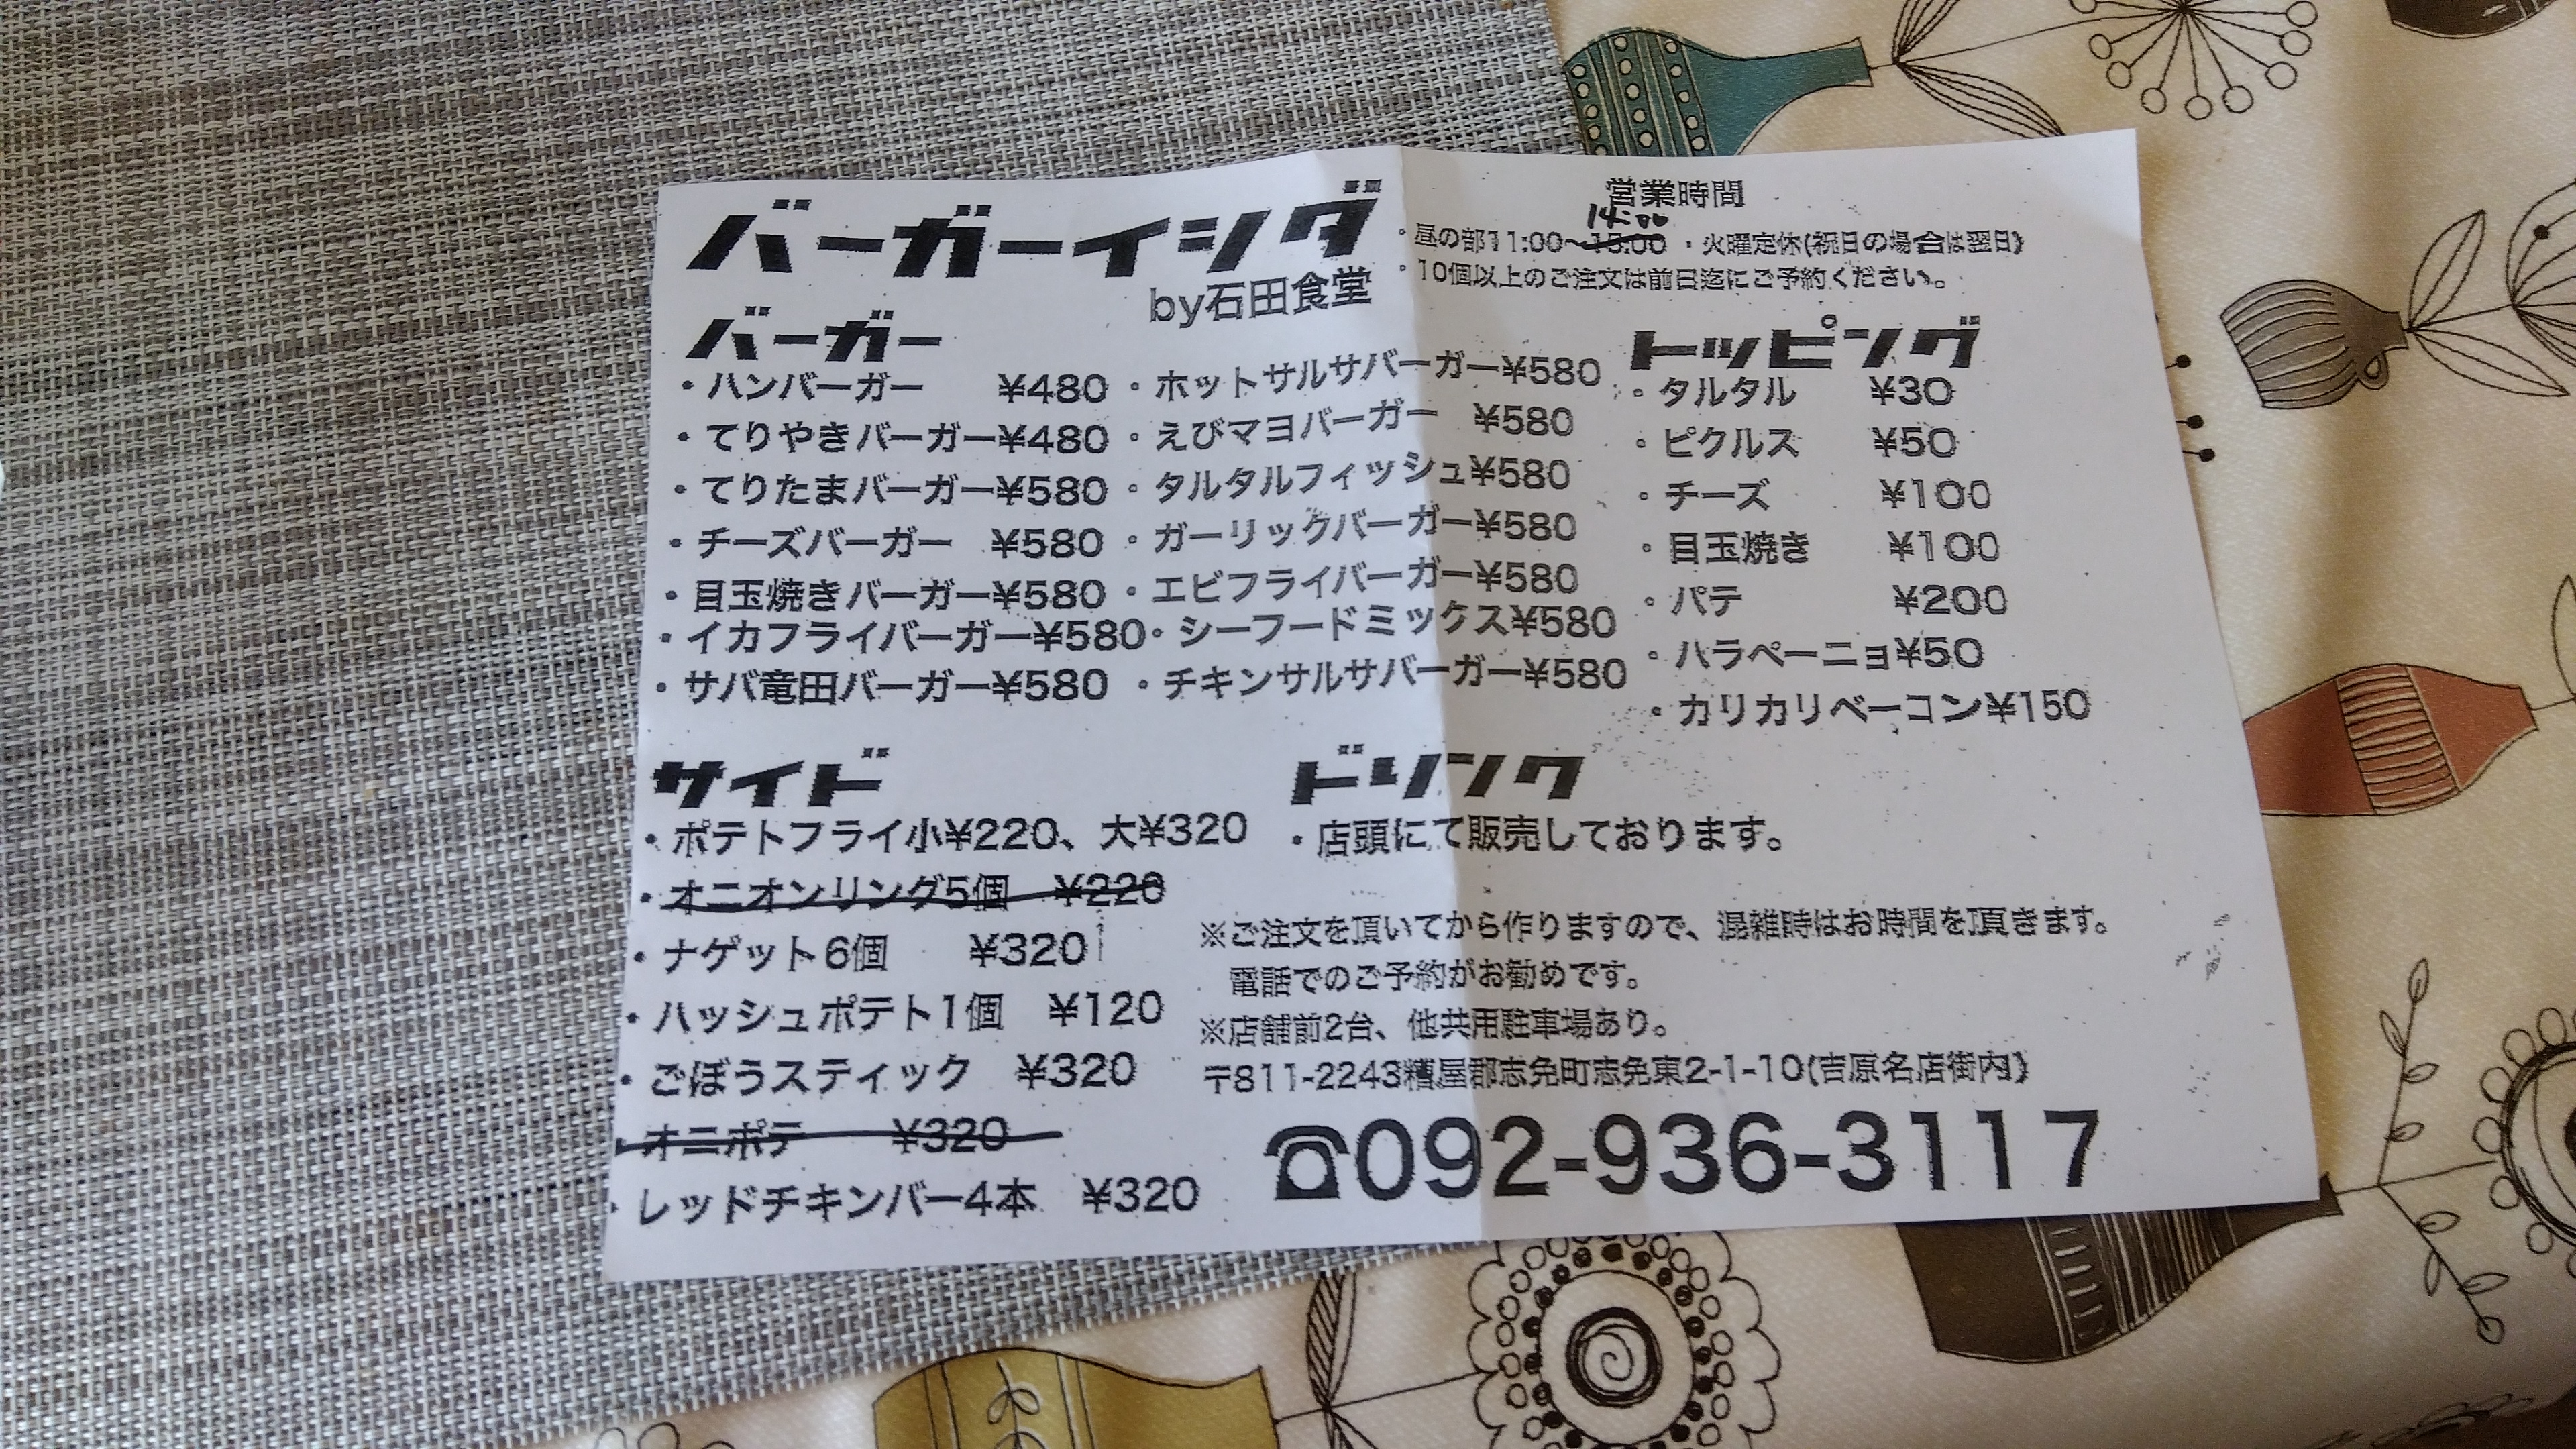 バーガーイシダ
by石田食堂
営業時間
14:00
・昼の部11:00～15:00 ・火曜定休(祝日の場合は翌日)
・10個以上のご注文は前日迄にご予約ください。
バーガー
・ハンバーガー ¥480
・てりやきバーガー¥480
・てりたまバーガー¥580
・チーズバーガー ¥580
・目玉焼きバーガー¥580
・イカフライバーガー¥580
・サバ竜田バーガー¥580
・ホットサルサバーガー¥580
・えびマヨバーガー ¥580
・タルタルフィッシュ¥580
・ガーリックバーガー¥580
・エビフライバーガー¥580
・シーフードミックス¥580
・チキンサルサバーガー¥580
トッピング
・タルタル ¥30
・ピクルス ¥50
・チーズ ¥100
・目玉焼き ¥100
・パテ ¥200
・ハラペーニョ¥50
・カリカリベーコン¥150
サイド
・ポテトフライ小¥220、大¥320
・オニオンリング5個 ¥220
・ナゲット6個 ¥320
・ハッシュポテト1個 ¥120
・ごぼうスティック ¥320
・オニポテ ¥320
・レッドチキンバー4本 ¥320
ドリンク
・店頭にて販売しております。
※ご注文を頂いてから作りますので、混雑時はお時間を頂きます。
電話でのご予約がお勧めです。
※店舗前2台、他共用駐車場あり。
〒811-2243糟屋郡志免町志免東2-1-10(吉原名店街内)
☎092-936-3117